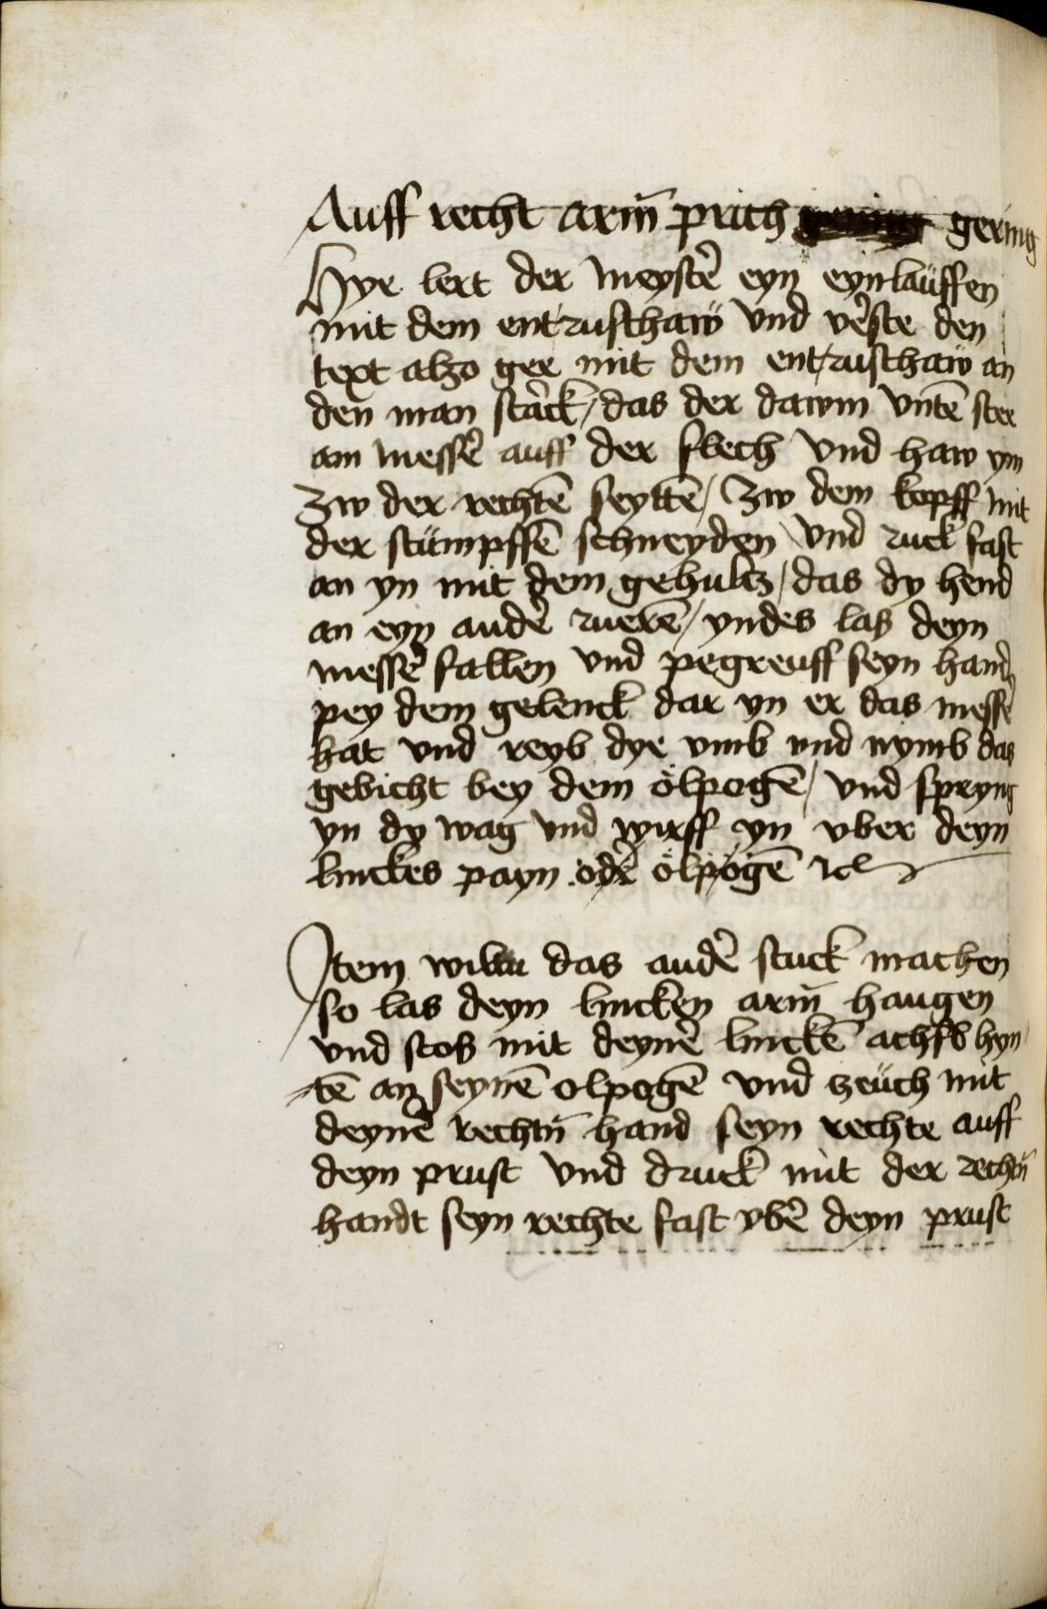 Auff recht arm̄ prich gering
Hye lert der meystẻ eyn eynlauffen
mit dem entruschaẅ vnd vẻste den
text alzo gee mit dem entruschaẅ an
den man starck / das der dawm vntē stee
am messẻ auff der flech vnd haw ym
zw der rechtē seyttē / zw dem kopff mit
der stümpffē schneyden vnd ruck fast
an yn mit dem gehultz / das dy hend
an eyn andẻ rueren / yndes las deyn
messẻ fallen vnd pegreuff seyn hand
pey dem gelenck dar yn er das messẻ
hat vnd reyb dye vmb vnd nymb das
gebicht bey dem ölpogē / vnd spryng
yn dy wag vnd wirff yn vber deyn
linckes payn odẻ ölpogē ꝛc
Item wiltu das andẻ stuck machen
so las deyn lincken arm̄ hangen
vnd stos mit deynẻ linckē achsl hyn
tē an seynē olpogē vnd zeüch mit
deynẻ rechtn̄ hand seyn rechte auff
deyn prust vnd druck mit der rechtn̄
handt seyn rechte fast vbẻ deyn prust